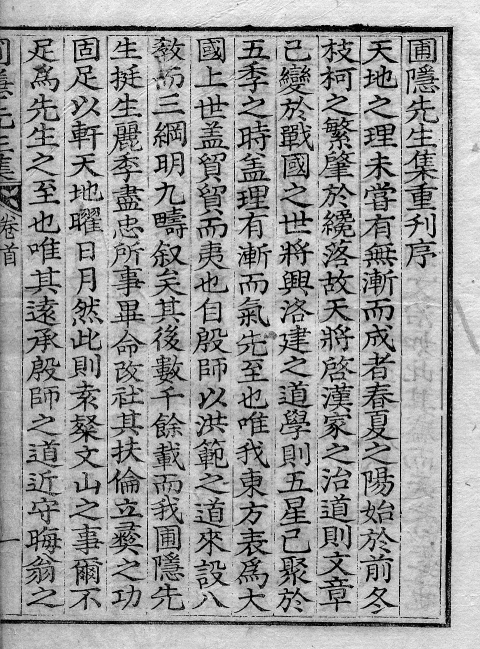 圃隱先生集重刊序
天地之理未嘗有無漸而成者春夏之陽始於前冬
枝柯之繁肇於纔落故天將啓漢家之治道則文章
已變於戰國之世將興洛建之道學則五星已聚於
五季之時盖理有漸而氣先至也唯我東方表爲大
國上世盖貿貿而夷也自殷師以洪範之道來設八
敎而三綱明九疇叙矣其後數千餘載而我圃隱先
生挺生麗季盡忠所事畢命改社其扶倫立彛之功
固足以軒天地曜日月然此則袁粲文山之事爾不
足爲先生之至也唯其遠承殷師之道近守晦翁之
卷首
一